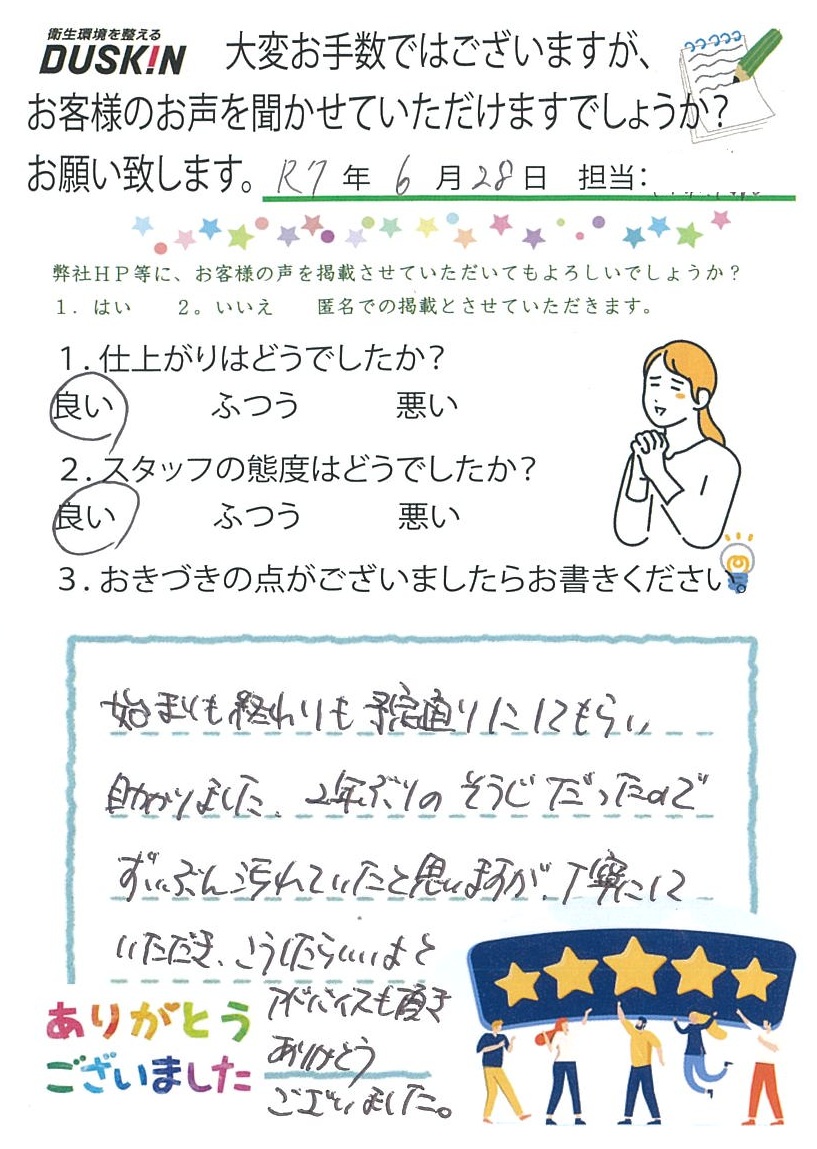 衛生環境を整える
DUSKIN 大変お手数ではございますが、
お客様のお声を聞かせていただけますでしょうか?
お願い致します。 R7 年 6 月 28 日 担当:
弊社HP等に、お客様の声を掲載させていただいてもよろしいでしょうか?
1. はい 2。いいえ 匿名での掲載とさせていただきます。
1. 仕上がりはどうでしたか?
良い ふつう 悪い
2. スタッフの態度はどうでしたか?
良い ふつう 悪い
3. おきづきの点がございましたらお書きください。
始まりも終わりも予定通りにしてもらい
助かりました、2年ぶりのそうじだったので
ずいぶん汚れていたと思いますが、丁寧にして
いただき、こうしたらいいよと
アドバイスも頂き
ありがとう
ございました。
ありがとう
ございました